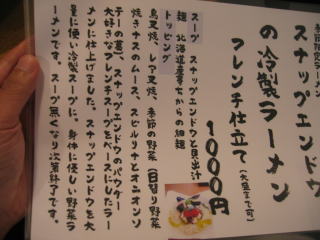 季節限定ラーメン
スナップエンドウ
の冷製ラーメン
フレンチ仕立て (大盛まで可)
1000円
スープ スナップエンドウと貝出汁
麺 北海道産春ちからの細麺
トッピング
鳥叉焼、レア叉焼、季節の野菜(日替り野菜
焼きナスのムース、スピルリナとオニオンソ
テーの葛)、スナップエンドウのパウダー
大好きなフレンチスープをベースにしたラー
メンに仕上げました。スナップエンドウを大
量に使い冷製スープに。身体に優しい野菜ラ
ーメンです。スープ無くなり次第終了です。